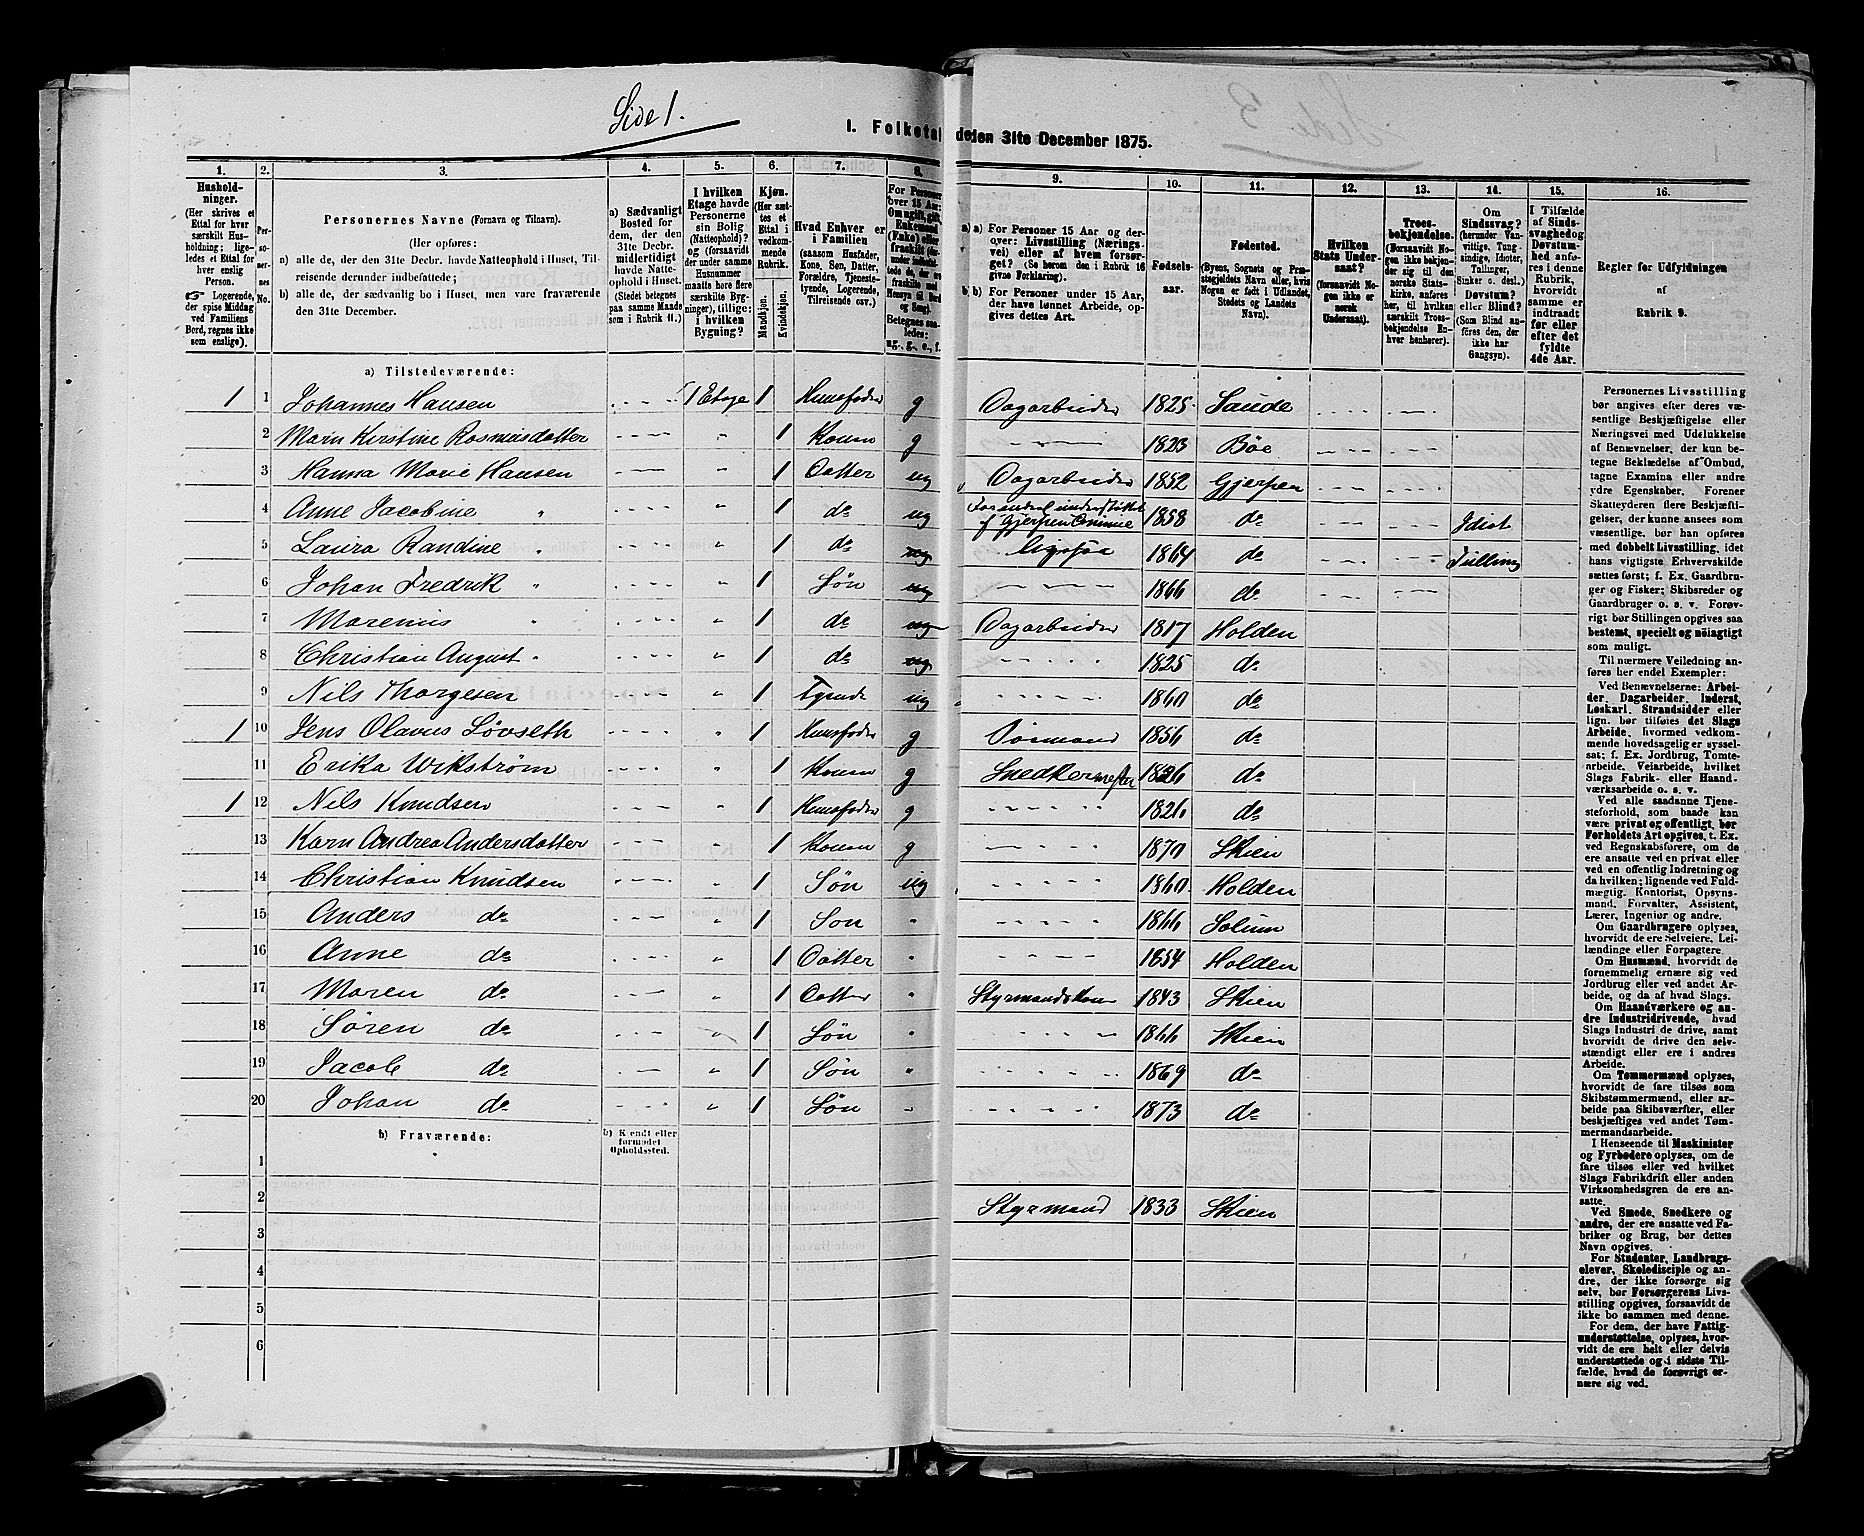 Side 1.
I. Folketal
den 31te December 1875.
1.
2.
3.
4.
5.
6.
7.
8.
9.
10.
11.
12.
13.
14.
15.
16.
Hushold-
ninger.
(Her skrives et
Ettal for hver
særskilt Hus-
holdning; lige-
ledes et Ettal for
hver enslig
Person.
☞ Logerende,
der spise Middag
ved Familiens
Bord, regnes ikke
som enslige).
Per-
so-
ner-
nes
No.
Personernes Navne (Fornavn og Tilnavn).
(Her opføres:
a) alle de, der den 31te Decbr. havde Natteophold i Huset, Til-
reisende derunder indbefattede;
b) alle de, der sædvanlig bo i Huset, men vare fraværende
den 31te December.
a) Sædvanligt
Bosted for
dem, der den
31te Decbr.
midlertidigt
havde Natte-
ophold i Huset.
(Stedet betegnes
paa samme Maade
som i Rubrik 11.)
I hvilken
Etage havde
Personerne
sin Bolig
(Natteophold)?
og (forsaavidt
der under samme
Husnummer
maatte høre flere
særskilte Byg-
ninger), tillige:
i hvilken
Bygning?
Kjøn.
(Her sæt-
tes et
Ettal i
vedkom-
mende
Rubrik.
Mandkjøn.
Kvindekjøn.
Hvad Enhver er
i Familien
(saasom Husfader,
Kone, Søn, Datter,
Forældre, Tjeneste-
tyende, Logerende,
Tilreisende osv.)
For Personer
over 15 Aar:
Om ugift, gift,
Enkemand
(Enke) eller
fraskilt
Betegnes saa-
ledes:
ug., g., e., f.
a) For Personer 15 Aar og der-
over: Livsstilling (Nærings-
vei) eller af hvem forsør-
get? (Se herom den i Rubrik 16
givne Forklaring).
b) For Personer under 15 Aar,
der have lønnet Arbeide, op-
gives dettes Art.
Fødsels-
aar.
Fødested.
(Byens, Sognets og Præ-
stegjeldets Navn eller, hvis
Nogen er født i Udlandet,
Stedets og Landets
Navn).
Hvilken
Stats Under-
saat?
(forsaavidt No-
gen ikke er
norsk
Undersaat).
Troes-
bekjendelse.
(Forsaavidt No-
gen ikke bekjen-
der sig til den
norske Stats-
kirke, anføres
her, til hvilken
særskilt Troes-
bekjendelse En-
hver henhører).
Om
Sindssvag?
(herunder Van-
vittige, Tung-
sindige, Idioter,
Tullinger,
Sinker o. desl.)
Døvstum?
eller Blind?
(Som Blind an-
føres den, der
ikke har
Gangsyn).
I Tilfælde
af Sinds-
svaghed og
Døvstum-
hed anfø-
res i denne
Rubrik,
hvorvidt
samme er
indtraadt
før eller
efter det
fyldte
4de Aar.
Regler for Udfyldningen
af
Rubrik 9.
a) Tilstedeværende:
1 1 Johannes Hansen 1 Etage 1 Huusfader g Dagarbeider 1825 Saude
2 Marn Kirstine Rasmusdatter 1 Konen g 1823 Bøe
3 Hanna Marie Hansen 1 Datter ug Dagarbeider 1852 Gjerpen
4 Anne Jacobine " 1 do ug af Gjerpen Comune 1858 do Idiot
5 Laura Randine " 1 do ug 1864 do Tulling
6 Johan Fredrik " 1 Søn ug 1866 do
7 Marenius " 1 do ug Dagarbeider 1817 Holden
8 Christian August " 1 do ug 1825 do
9 Nils Thorgesen 1 ug 1860 do
1 10 Jens Olavus Løvseth 1 Huusfader g Sømand 1856 do
11 Erika Wikstrøm 1 Konen g Snedkermester 1826 do
1 12 Nils Knudsen 1 Huusfader g 1826 do
13 Karn Andrea Andersdatter 1 Konen g 1870 Skien
14 Christian Knudsen 1 Søn ug 1860 Holden
15 Anders do 1 Søn " 1866 Solum
16 Anne do 1 Datter " 1854 Holden
17 Maren do 1 Datter " Styrmandskone 1843 Skien
18 Søren do 1 Søn " 1866 Skien
19 Jacob do 1 Søn " 1869 do
20 Johan do 1 Søn " 1873 do
b) Fraværende:
b) Kjendt eller
formodet
Opholdssted.
1
2 Styrmand 1833 Skien
3
4
5
6
Personernes Livsstilling
bør angives efter deres væ-
sentlige Beskjæftigelse eller
Næringsvei med Udelukkelse
af Benævnelser, der kun be-
tegne Beklædelse af Ombud,
tagne Examina eller andre
ydre Egenskaber. Forener
Skatteyderen flere Beskjæfti-
gelser, der kunne ansees som
væsentlige, bør han opføres
med dobbelt Livsstilling, idet
hans vigtigste Erhvervskilde
sættes først; f. Ex. Gaardbru-
ger og Fisker; Skibsreder og
Gaardbruger o. s. v. Forøv-
rigt bør Stillingen opgives saa
bestemt, specielt og nöiagtigt
som muligt.
Til nærmere Veiledning an-
føres her endel Exempler:
Ved Benævnelserne: Arbei-
der, Dagarbeider, Inderst,
Løskarl, Strandsidder eller
lign. bør tilføies det Slags
Arbeide, hvormed vedkom-
mende hovedsagelig er syssel-
sat; f. Ex. Jordbrug, Tomte-
arbeide, Veiarbeide, hvilket
Slags Fabrik- eller Haand-
værksarbeide o. s. v.
Ved alle saadanne Tjene-
steforhold, som baade kan
være privat og offentligt, bør
Forholdets Art opgives, t. Ex.
ved Regnskabsførere, om de
ere ansatte ved en privat eller
ved en offentlig Indretning og
da hvilken; lignende ved Fuld-
mægtig, Kontorist, Opsyns-
mand, Forvalter, Assistent,
Lærer, Ingeniør og andre.
Om Gaardbrugere oplyses,
hvorvidt de ere Selveiere, Lei-
lændinge eller Forpagtere.
Om Husmænd, hvorvidt de
fornemmelig ernære sig ved
Jordbrug eller ved andet Ar-
beide, og da af hvad Slags.
Om Haandværkere og an-
dre Industridrivende, hvad
Slags Industri de drive, samt
hvorvidt de drive den selv-
stændigt eller ere i andres
Arbeide.
Om Tømmermænd oplyses,
hvorvidt de fare tilsøs som
Skibstømmermænd, eller ar-
beide paa Skibsværfter, eller
beskjæftiges ved andet Tøm-
mermandsarbeide.
I Henseende til Maskinister
og Fyrbødere oplyses, om de
fare tilsøs eller ved hvilket
Slags Fabrikdrift eller anden
Virksomhedsgren de ere an-
satte.
Ved Smede, Snedkere og
andre, der ere ansatte ved Fa-
briker og Brug, bør dettes
Navn opgives.
For Studenter, Landbrugs-
elever, Skoledisciple og an-
dre, der ikke forsørge sig
selv, bør Forsørgerens Livs-
stilling opgives, forsaavidt de
ikke bo sammen med denne.
For dem, der have Fattig-
understøttelse, oplyses, hvor-
vidt de ere helt eller delvis
understøttede og i sidste Til-
fælde, hvad de forøvrigt er-
nære sig ved.